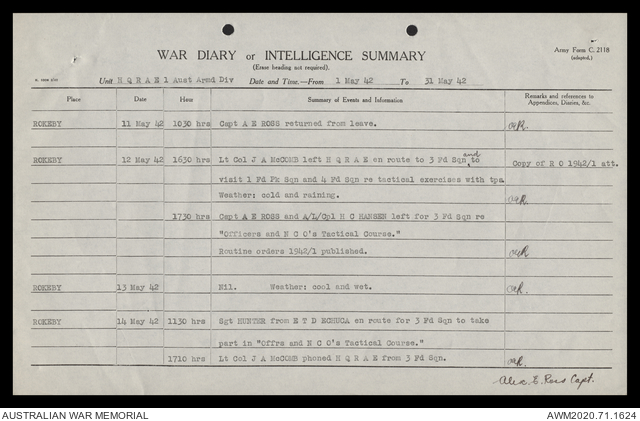 WAR DIARY or INTELLIGENCE SUMMARY
(Erase heading not required).
Army Form C. 2118
(adapted.)
Unit H Q R A E 1 Aust Armd Div Date and Time.—From 1 May 42 To 31 May 42
Place Date Hour Summary of Events and Information Remarks and references to Appendices, Diaries, &c.
ROKEBY 11 May 42 1030 hrs Capt A E ROSS returned from leave. aeR.
ROKEBY 12 May 42 1630 hrs Lt Col J A McCOMB left H Q R A E en route to 3 Fd Sqn and to Copy of R O 1942/1 att.
visit 1 Fd Pk Sqn and 4 Fd Sqn re tactical exercises with tps
Weather: cold and raining. aeR.
1730 hrs Capt A E ROSS and A/L/Cpl H C HANSEN left for 3 Fd Sqn re
"Officers and N C O's Tactical Course."
Routine orders 1942/1 published. aeR
ROKEBY 13 May 42 Nil. Weather: cool and wet. aeR.
ROKEBY 14 May 42 1130 hrs Sgt HUNTER from E T D ECHUCA en route for 3 Fd Sqn to take
part in "Offrs and N C O's Tactical Course."
1710 hrs Lt Col J A McCOMB phoned H Q R A E from 3 Fd Sqn. aeR.
Alec. E. Ross Capt.
AUSTRALIAN WAR MEMORIAL AWM2020.71.1624